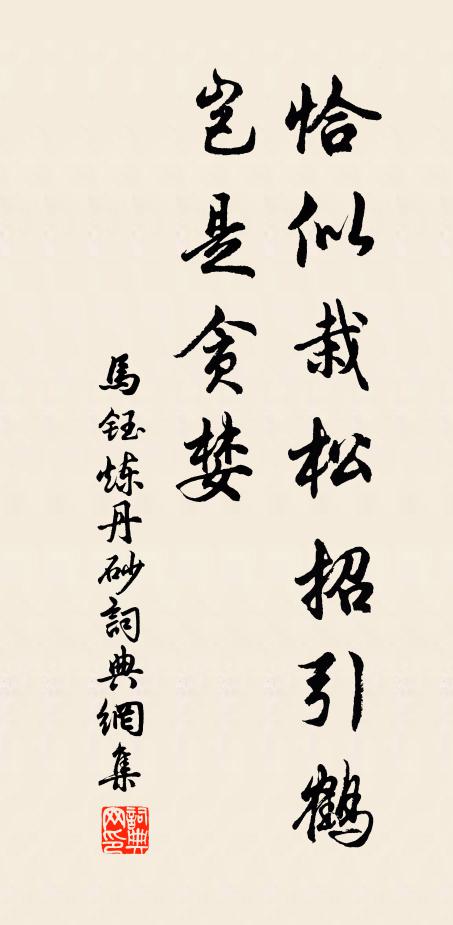 恰似栽松招引鹤
岂是贪婪
馬鈺炼丹砂詞典網集
詞典网印